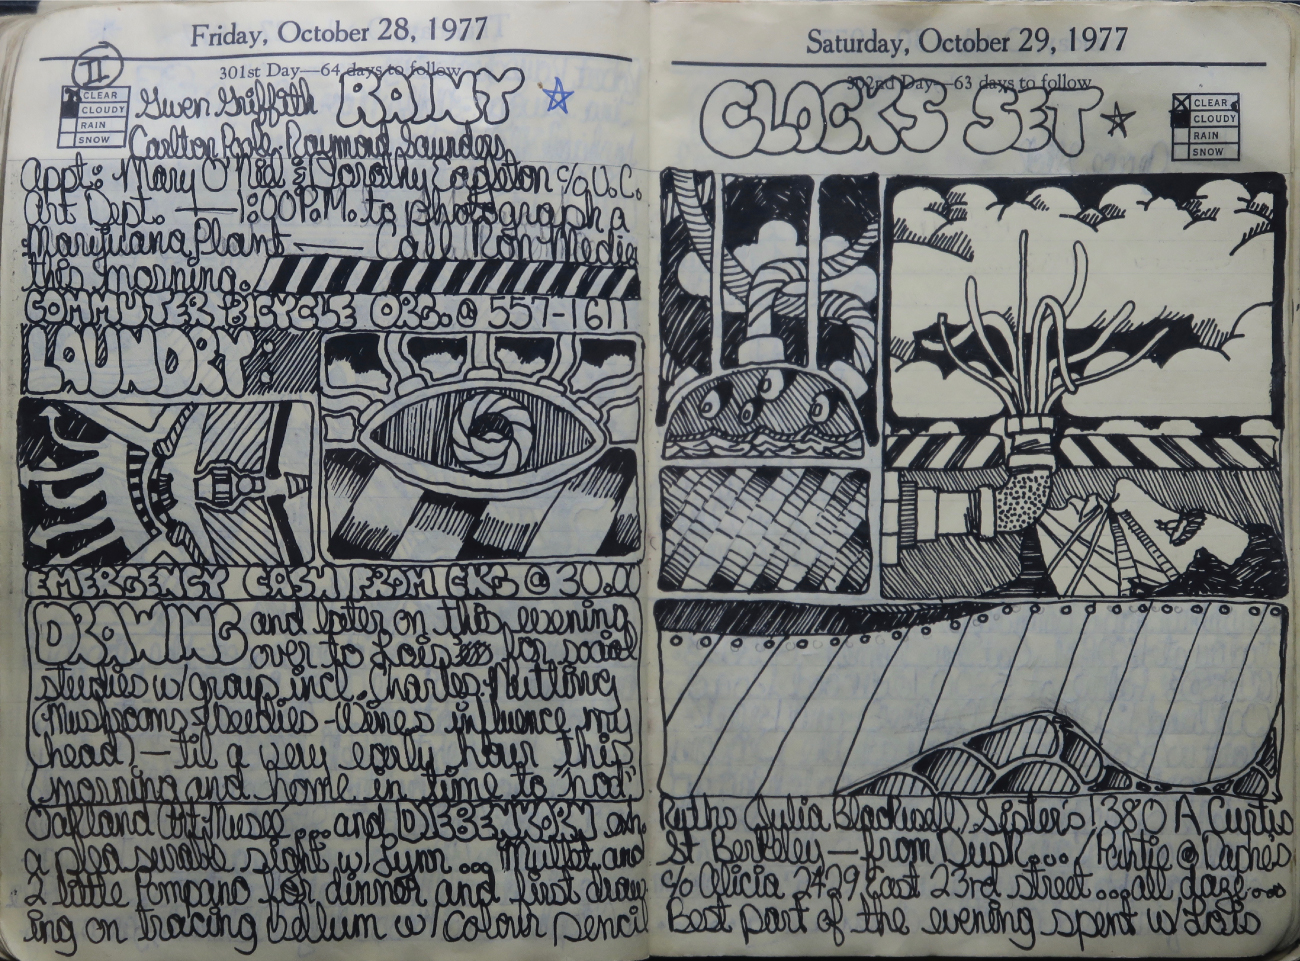 Friday, October 28, 1977
301st Day—64 days to follow
II
CLEAR
CLOUDY
RAIN
SNOW
Gwen Griffith RAINY
Carlton Ball. Raymond Saunders
Appt: Mary O'Niel & Dorothy Eagleton c/o U.C.
Art Dept. — 1:00 P.M. to photograph a
Marijuana Plant — Call Ron Medie
this morning.
COMMUTER BICYCLE ORG. @ 557-1611
LAUNDRY:
EMERGENCY CASH FROM CKG @ 30.00
DRAWING and later on this evening
over to Lois for social
studies w/group incl. Charles Nutling
(Mushrooms & Weedies - Wines influence my
head) — til a very early hour this
morning and home in time to "nod"
Oakland Art Musee... and DIEBENKORN exh.
a pleasurable sight w/Lynn... Mullot and
2 little Pompano for dinner and first draw
ing on tracing vellum w/Colour pencil
Saturday, October 29, 1977
302nd Day—63 days to follow
CLOCKS SET
CLEAR
CLOUDY
RAIN
SNOW
Ruths (Julia Blackwell) Sisters 1380 A Curtis
St Berkeley — from Dusk.../Partie @
c/o Alicia 2429 East 23rd street... all daze...
Best part of the evening spent w/Lois